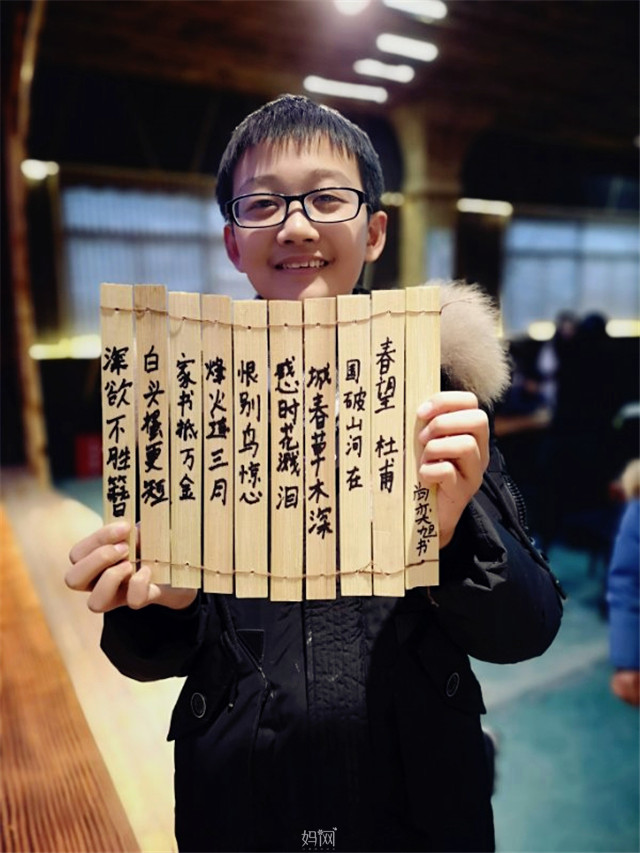 尚奕旭书
春望 杜甫
国破山河在
城春草木深
感时花溅泪
恨别鸟惊心
烽火连三月
家书抵万金
白头搔更短
浑欲不胜簪
妈网